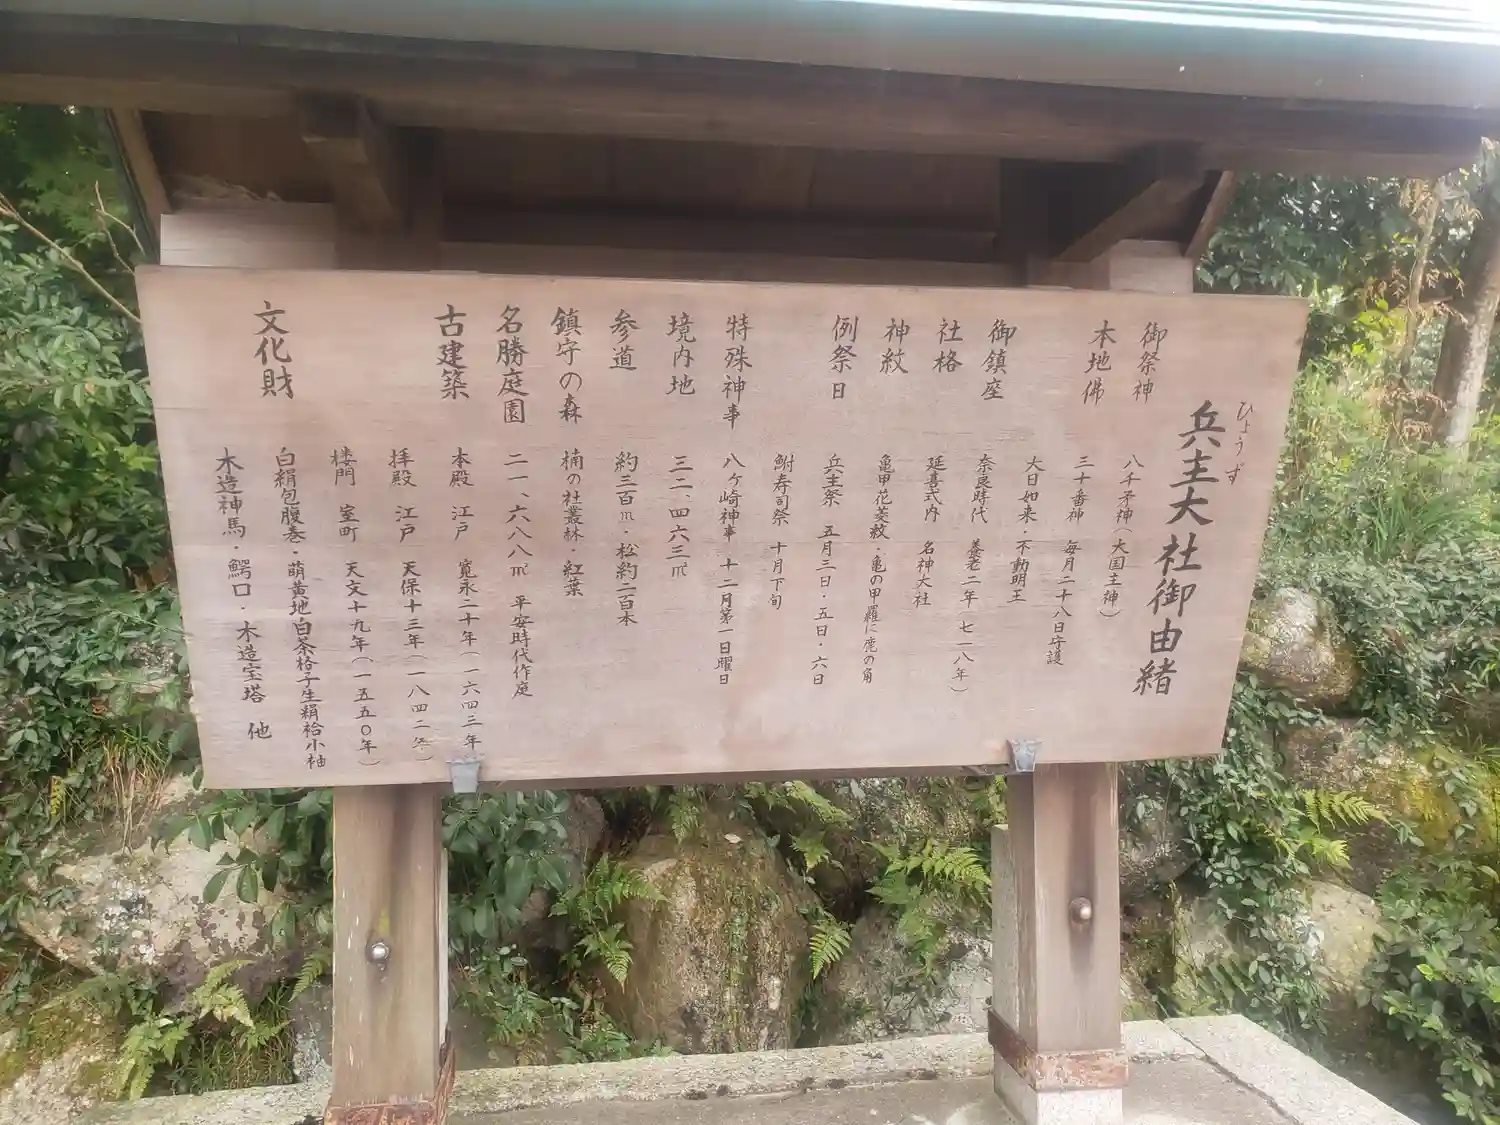 ひょうず
兵主大社御由緒
御祭神 八千矛神(大国主神)
本地佛 三十番神 毎月二十八日守護
大日如来・不動明王
御鎮座 奈良時代 養老二年 七一八年)
社格 延喜式内 名神大社
神紋 亀甲花菱紋・亀の甲羅に鹿の角
例祭日 兵主祭 五月三日・五日・六日
鮒寿司祭 十月下旬
特殊神事 八ヶ崎神事 十二月第一日曜日
境内地 三二、四六三㎡
参道 約三百m・松約二百本
鎮守の森 楠の社叢林・紅葉
名勝庭園 二一、六八八㎡ 平安時代作庭
古建築 本殿 江戸 寛永二十年(一六四三年
拝殿 江戸 天保十三年(一八四二年)
楼門 室町 天文十九年(一五五〇年)
文化財 白絹包腹巻・萌黄地白茶格子生絹袷小袖
木造神馬・鰐口・木造宝塔 他